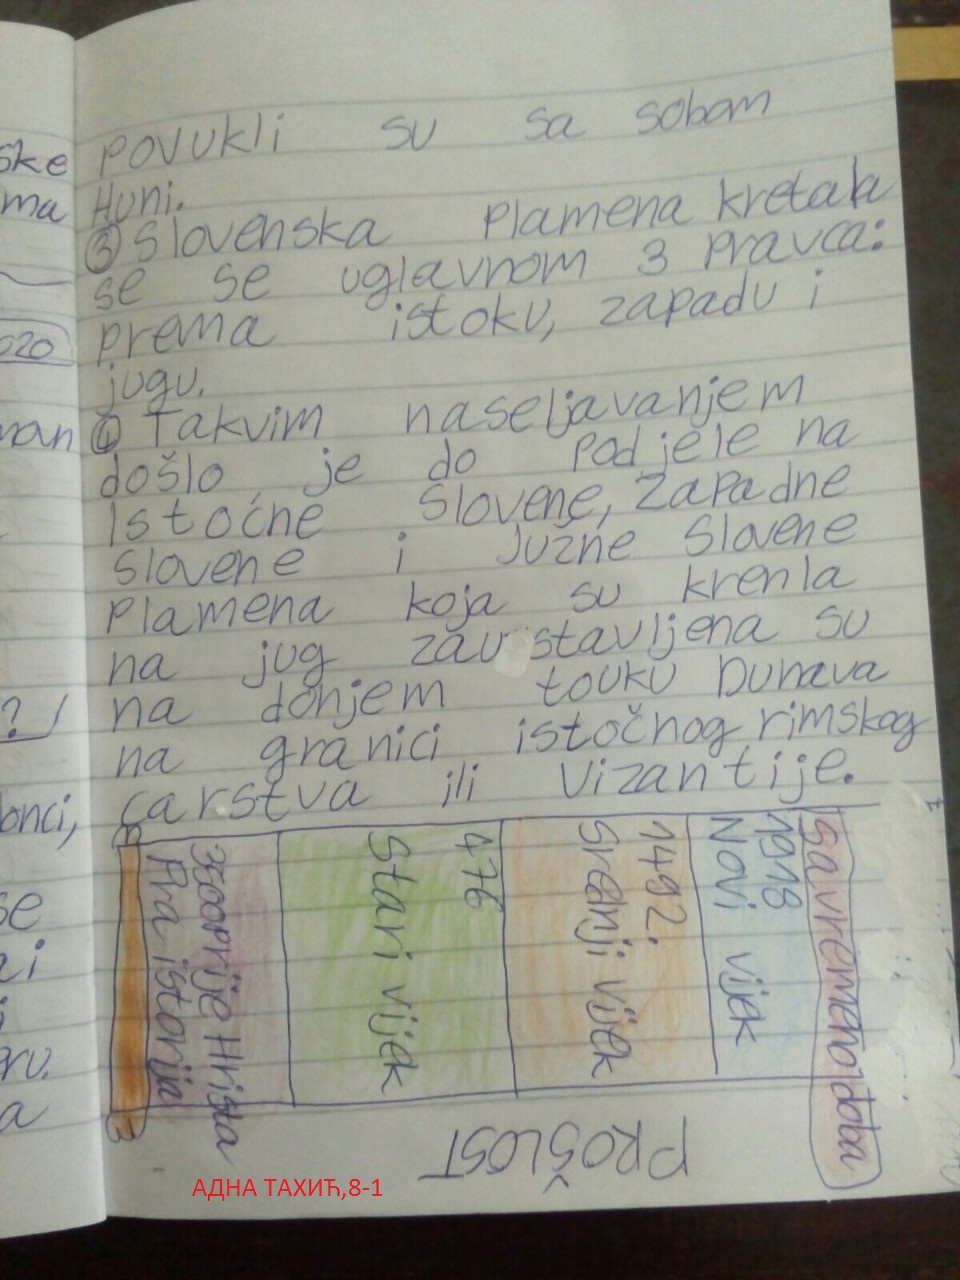 ske
ma
020
man
? /
onci,
se
ai
ru.
a
povukli su sa sobom
Huni.
③ Slovenska Plamena kretala
se se uglavnom 3 pravca:
prema istoku, zapadu i
jugu.
④ Takvim naseljavanjem
došlo je do podjele na
Istočne Slovene, Zapadne
Slovene i Južne Slovene
Plamena koja su krenla
na jug zaustavljena su
na donjem touku Dunava
na granici istočnog rimskog
carstva ili Vizantije.
Savremeno doba
1918
Novi vijek
1492.
Srednji vijek
476
Stari vijek
prije Hrista
Pra istorija
PROŠLOST
АДНА ТАХИЋ,8-1